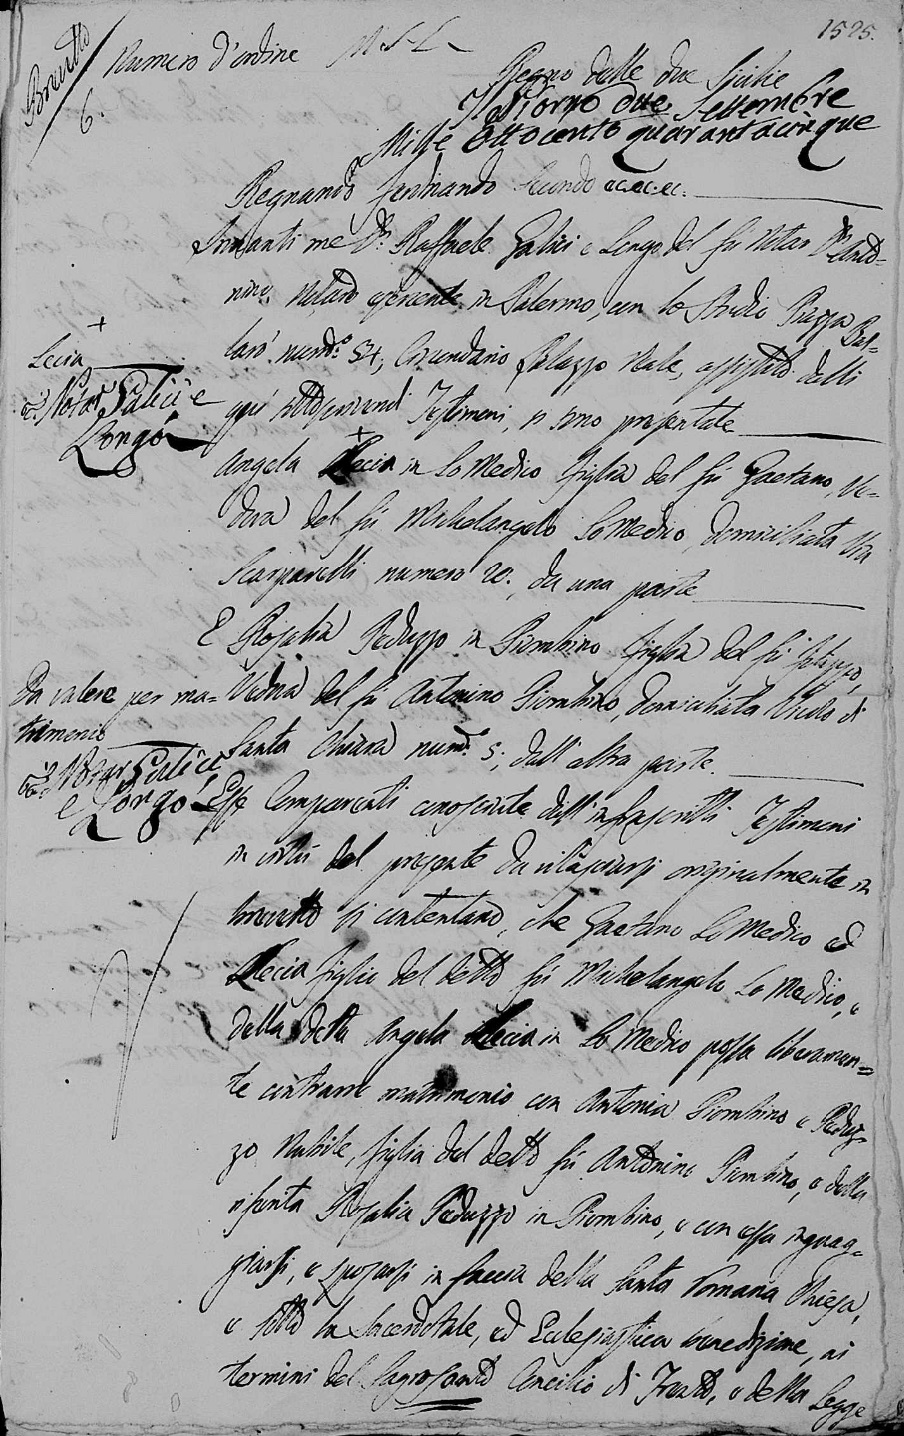 1525.
Brevetto
6.
Numero d'ordine
Regno delle due Sicilie
Il Giorno due Settembre
Mille Ottocento quarantacinque
Regnando Ferdinando Secondo ec. ec. ec.
Innanti me Dr. Raffaele Galici e Longo del fu Notar Dn. Anto-
nino, Notaro esercente in Palermo, con lo Studio Piazza Bal-
larò num.° 54, Circondario Palazzo Reale, assistito dalli
quì sottoscrivendi Testimoni, si sono presentate
+
Lecia
Notar Galici e
Longo
Angela Lecia in Lo Medico figlia del fu Gaetano, Ve-
dova del fu Michelangelo Lo Medico, domiciliata Via
Scarparelli numero 20., da una parte
E Rosalia Peduzzo in Piombino figlia del fu Filippo,
Vedova del fu Antonino Piombino, domiciliata Vicolo di
Santa Chiara num.° 5., dall'altra parte.
Da valere per ma-
trimonio
Notar Galici
e Longo
Esse Comparenti conosciute dall'infrascritti Testimoni
in virtù del presente da rilasciarsi originalmente in
brevetto si contentano, che Gaetano Lo Medico ed
Lecia figlio del detto fu Michelangelo Lo Medico, e
della detta Angela Lecia in Lo Medico possa liberamen-
te contrarre matrimonio con Antonia Piombino e Peduz-
zo Nubile, figlia del detto fu Antonino Piombino, e della
riferita Rosalia Peduzzo in Piombino, e con essa inguag-
giarsi, e sposarsi in faccia della Santa Romana Chiesa,
e sotto la Sacerdotale, ed Ecclesiastica benedizione, ai
termini del Sagrosanto Concilio di Trento, e della Legge